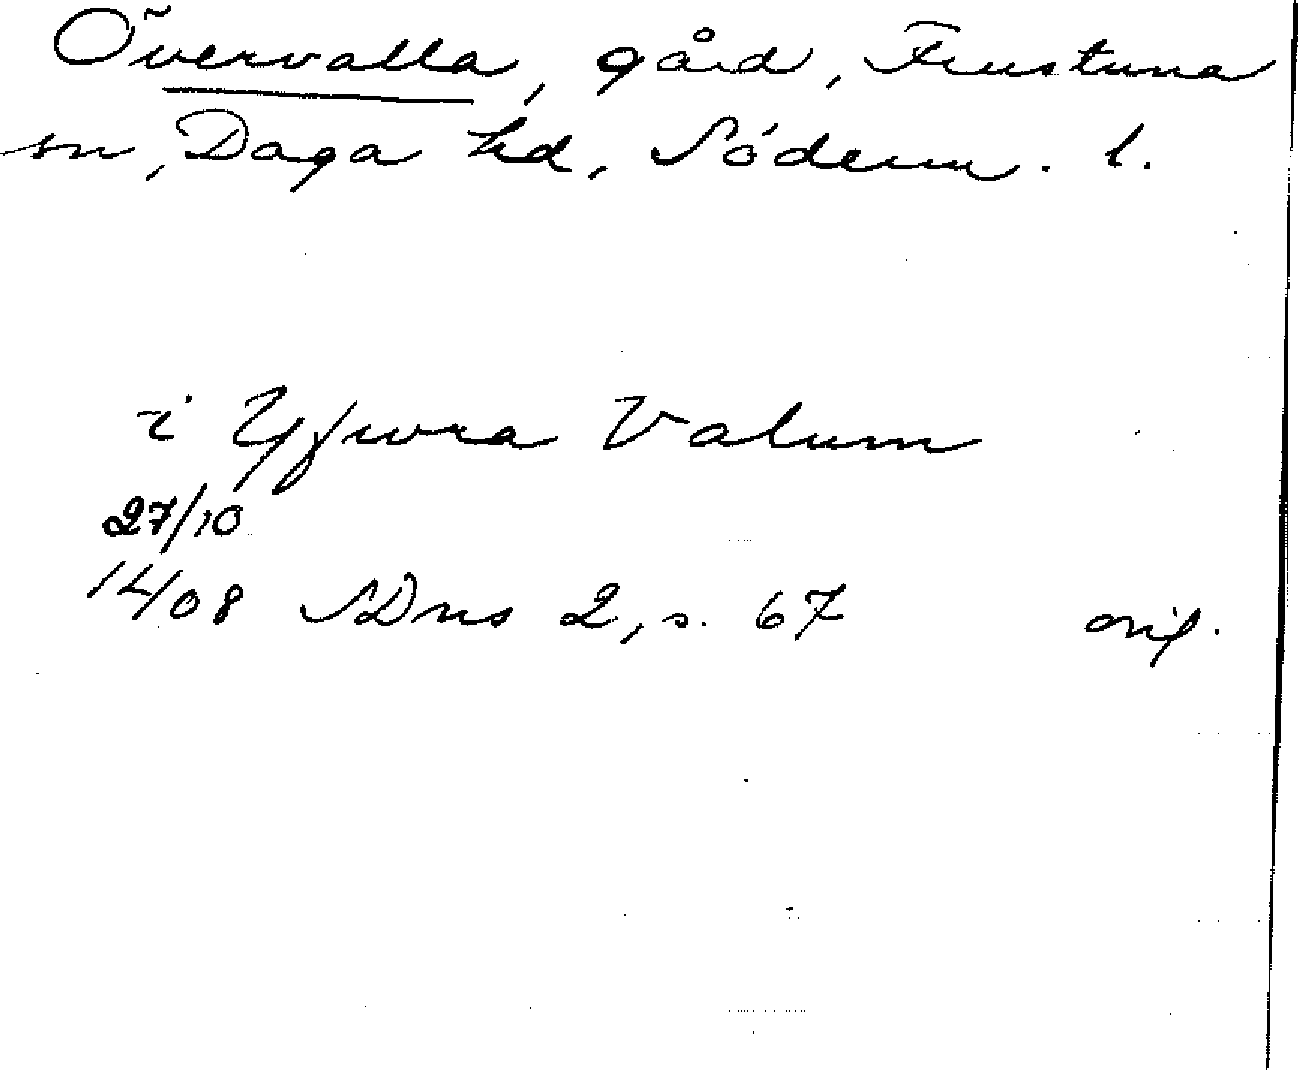 Övervalla, gård, Frustuna
sn, Daga hd, Söderm. l.
i Yfwra Valum
27/10
14/08 SDns 2, s. 67 orig.